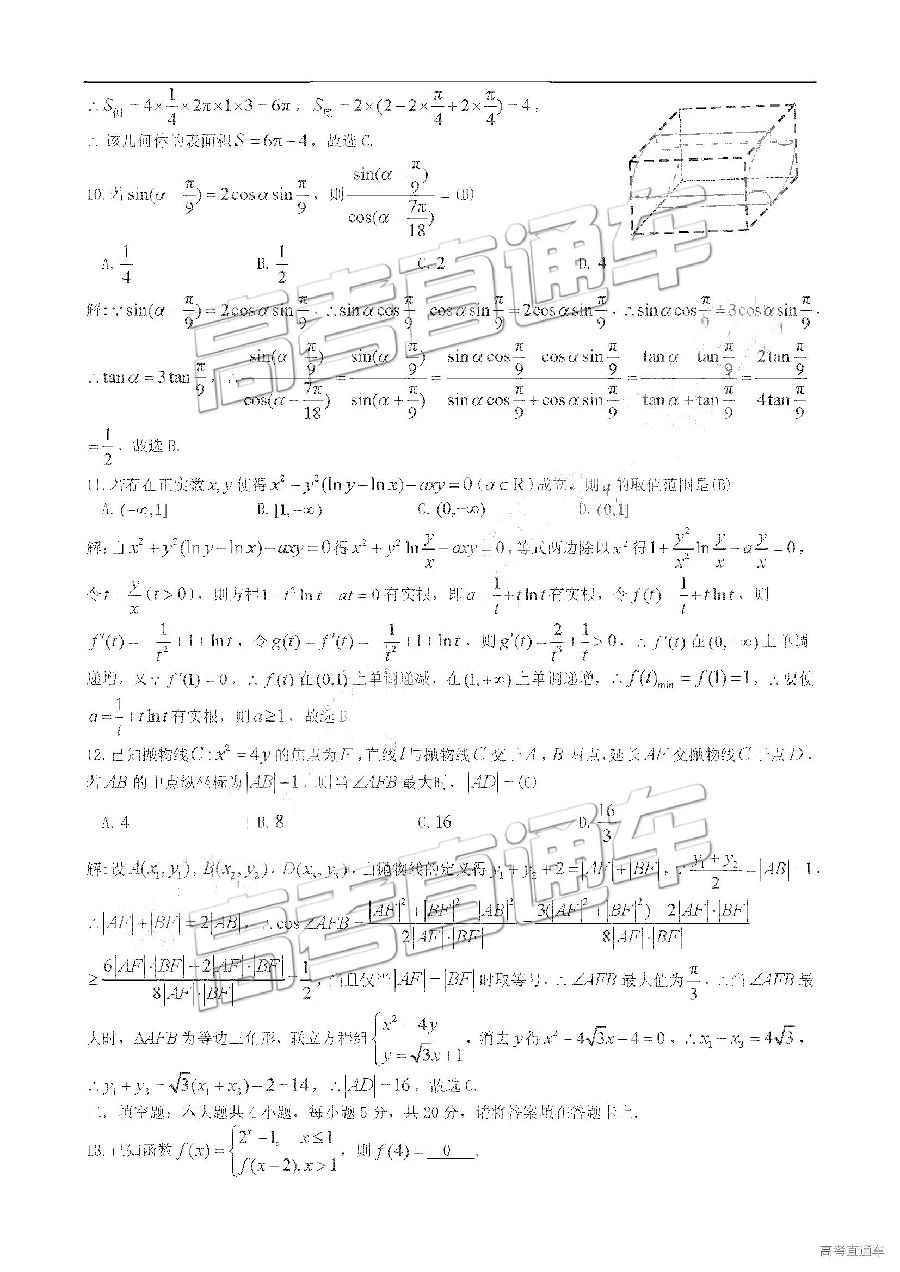 ∴S侧=4×1/4×2π×1×3=6π，S底=2×(2-2×π/4+2×π/4)=4，
∴该几何体的表面积S=6π-4，故选C.
10. 若sin(α π/9)=2cosαsinπ/9，则 sin(α π/9)/cos(α 7π/18)=(B)
A. 1/4 B. 1/2 C. 2 D. 4
解:∵sin(α π/9)=2cosαsinπ/9，∴sinαcosπ/9 cosαsinπ/9=2cosαsinπ/9，∴sinαcosπ/9=3cosαsinπ/9，
∴tanα=3tanπ/9，∴sin(α π/9)/cos(α-7π/18)=sin(α π/9)/sin(α+π/9)=(sinαcosπ/9 cosαsinπ/9)/(sinαcosπ/9+cosαsinπ/9)=(tanα tanπ/9)/(tanα+tanπ/9)=2tanπ/9/4tanπ/9
=1/2，故选B.
11. 若存在正实数x,y使得x²+y²(ln y-ln x)-axy=0(a∈R)成立，则a的取值范围是(B)
A. (-∞,1] B. [1,-∞) C. (0,-∞) D. (0,1]
解:由x²+y²(ln y-ln x)-axy=0得x²+y² ln y/x-axy=0，等式两边除以x²得1+y²/x² ln y/x-a y/x=0，
令t=y/x(t>0)，则方程1 t²ln t at=0有实根，即a 1/t+t ln t有实根，令f(t) 1/t+t ln t，则
f′(t)= 1/t²+1+ln t，令g(t)=f′(t)= 1/t²+1+ln t，则g′(t)=2/t³+1/t>0，∴f′(t)在(0,-∞)上单调
递增，又∵f′(1)=0，∴f(t)在(0,1)上单调递减，在(1,+∞)上单调递增，∴f(t)min=f(1)=1，∴要使
a=1/t+t ln t有实根，则a≥1，故选B
12. 已知抛物线C:x²=4y的焦点为F，直线l与抛物线C交于A，B两点，延长AF交抛物线C于点D，
若AB的中点纵坐标为|AB|-1，则当∠AFB最大时，|AD|=(C)
A. 4 B. 8 C. 16 D. 16/3
解:设A(x₁,y₁)，B(x₂,y₂)，D(x₃,y₃)，由抛物线的定义得y₁+y₂+2=|AF|+|BF|，∵(y₁+y₂)/2=|AB| 1，
∴|AF|+|BF|=2|AB|，∴cos∠AFB=(|AF|²+|BF|² |AB|²)/2|AF|·|BF|=(3(|AF|²+|BF|²) 2|AF|·|BF|)/8|AF|·|BF|
≥(6|AF|·|BF|-2|AF|·|BF|)/8|AF|·|BF|=1/2，当且仅当|AF|=|BF|时取等号，∴∠AFB最大值为π/3，∴当∠AFB最
大时，ΔAFB为等边三角形，联立方程组{x² 4y y=√3x+1，消去y得x²-4√3x-4=0，∴x₁+x₃=4√3，
∴y₁+y₃=√3(x₁+x₃)-2=14，∴|AD|=16，故选C.
二、填空题：本大题共4小题，每小题5分，共20分，请将答案填在答题卡上.
13. 已知函数f(x)={2ˣ-1, x≤1 f(x-2),x>1，则f(4)= 0 .
高考直通车
高考直通车
高考直通车